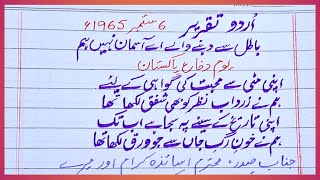 اُردو تقریر 6 ستمبر 1965ء
باطل سے دبنے والے اے آسماں نہیں ہم
یوم دفاع پاکستان
اپنی مٹی سے محبت کی گواہی کے لیئے
ہم نے زرداب نظر کو بھی شفق لکھا تھا
اپنی تاریخ کے سینے پہ سجا ہے اب تک
ہم نے خون رگِ جاں سے جو ورق لکھا تھا
جناب صدر، محترم اساتذہ کرام اور میرے